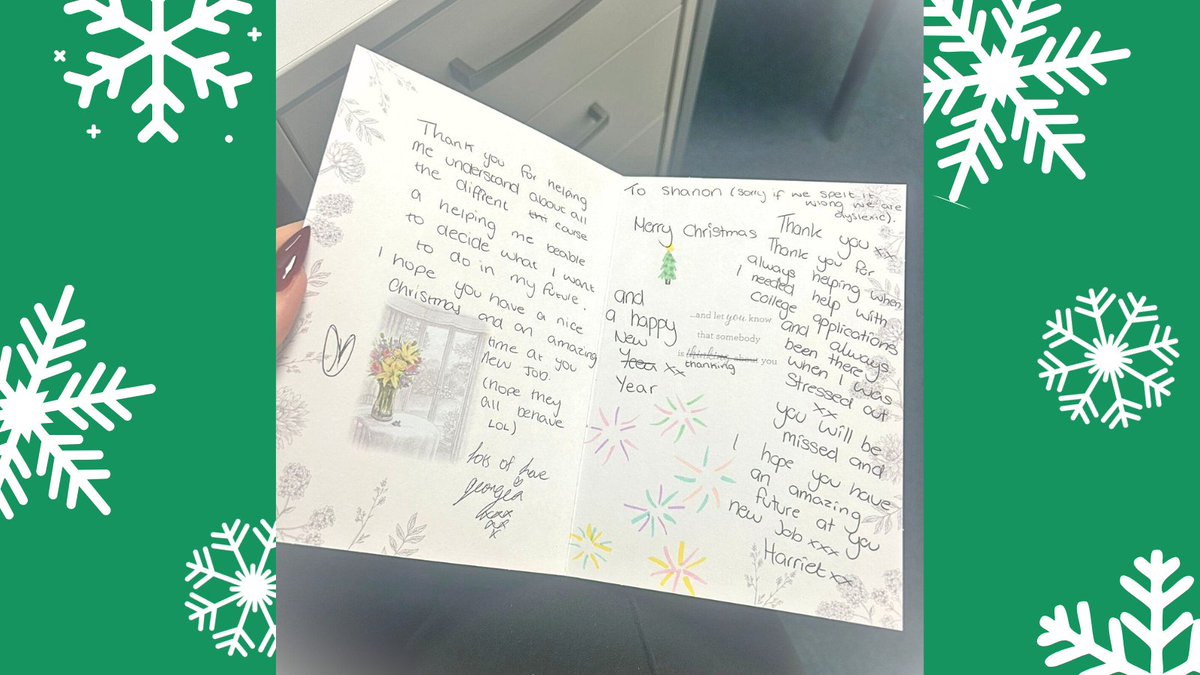 Thank you for helping
me understand about all
the diffrent the cause
a helping me beable
to decide what I want
to do in my future.
I hope you have a nice
Christmas and an amazing
time at you
New Job.
(hope they
all behave
LOL)
lots of love
georgea
To Shanon (sorry if we spelt it
wrong we are
dyslexic).
Merry Christmas
and
a happy
New
Year xx
Year
...and let you know
that somebody
is thinking about you
thanking
Thank you xx
Thank you for
always helping when
I needed help with
college applications
and always
been there
when I was
stressed out
xx
you will be
missed and
I hope you have
an amazing
future at you
new Job xxx
Harriet xx